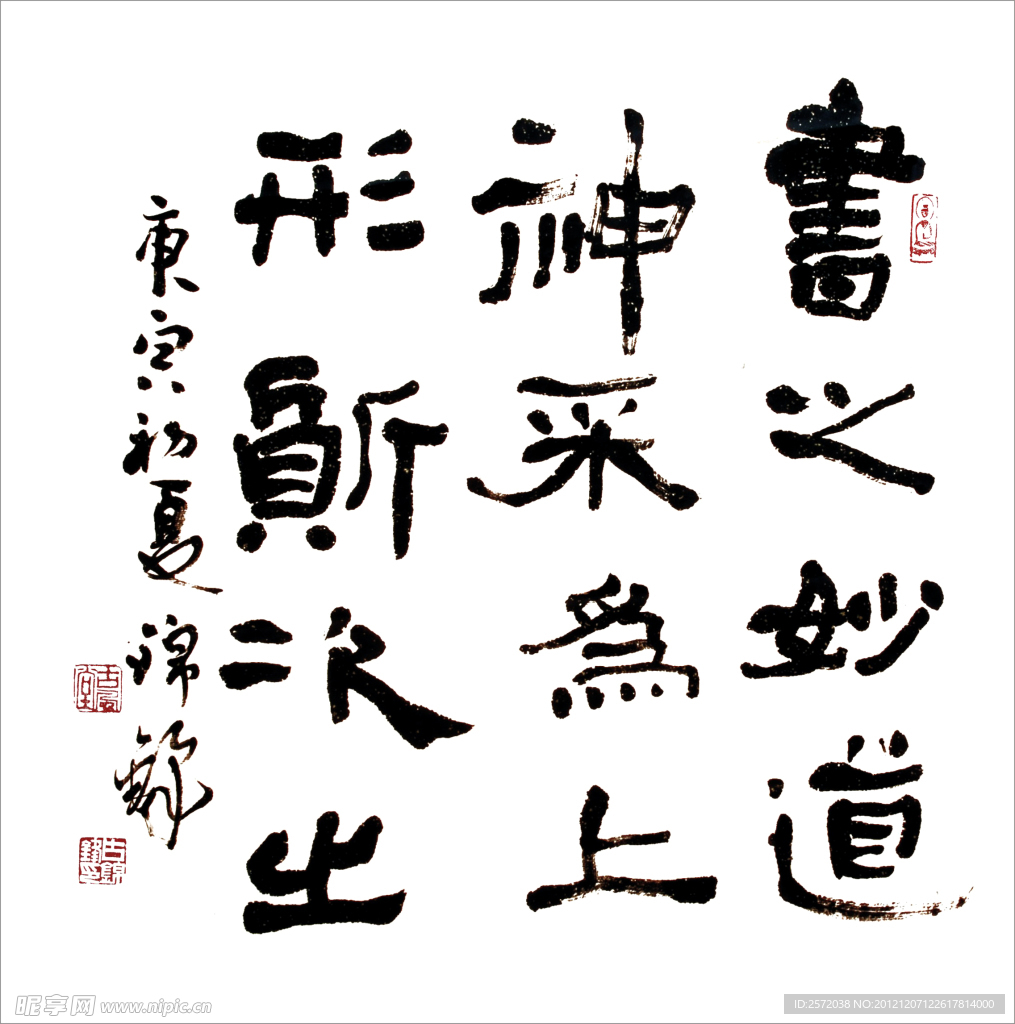 書之妙道
神采為上
形質次之
庚寅初夏錦
昵享网 www.nipic.cn
ID:2572038 NO:20121207122617814000